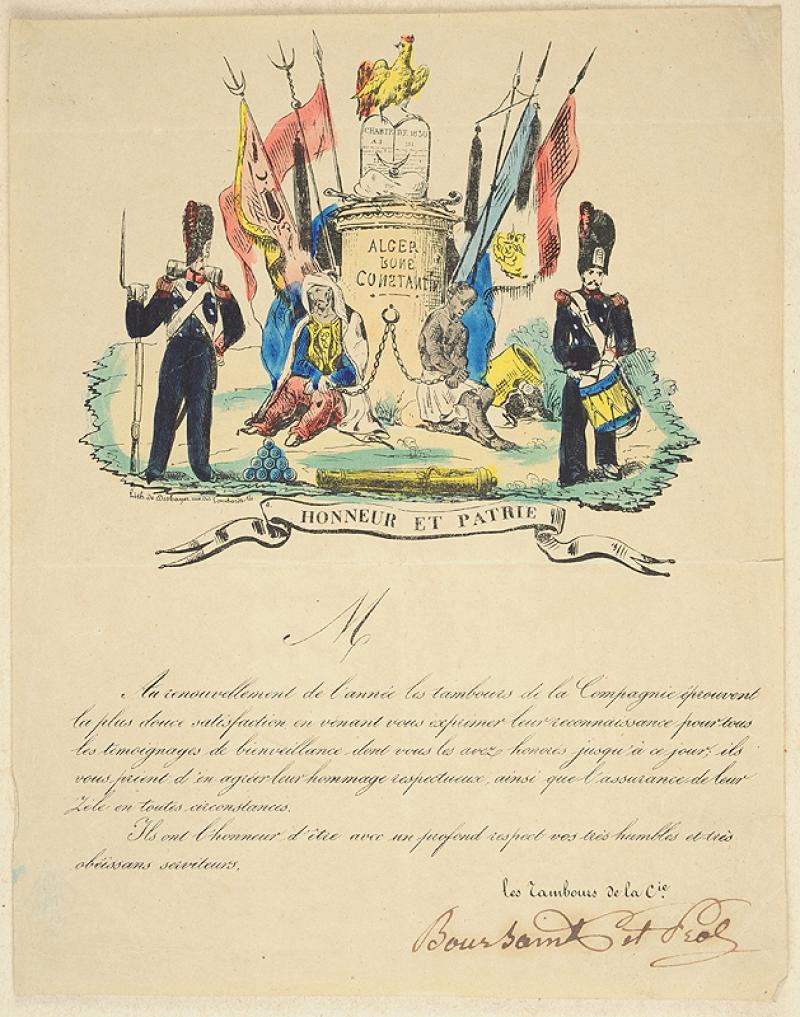 CHARTE DE 1830
ALGER
BONE
CONSTANTINE
Lith. de
HONNEUR ET PATRIE
M
Au renouvellement de l'année les tambours de la Compagnie éprouvent
la plus douce satisfaction en venant vous exprimer leur reconnaissance pour tous
les témoignages de bienveillance dont vous les avez honorés jusqu'à ce jour; ils
vous prient d'en agréer leur hommage respectueux, ainsi que l'assurance de leur
Zèle en toutes circonstances.
Ils ont l'honneur d'être avec un profond respect vos très humbles et très
obéissans serviteurs,
les Tambours de la Cie.
et